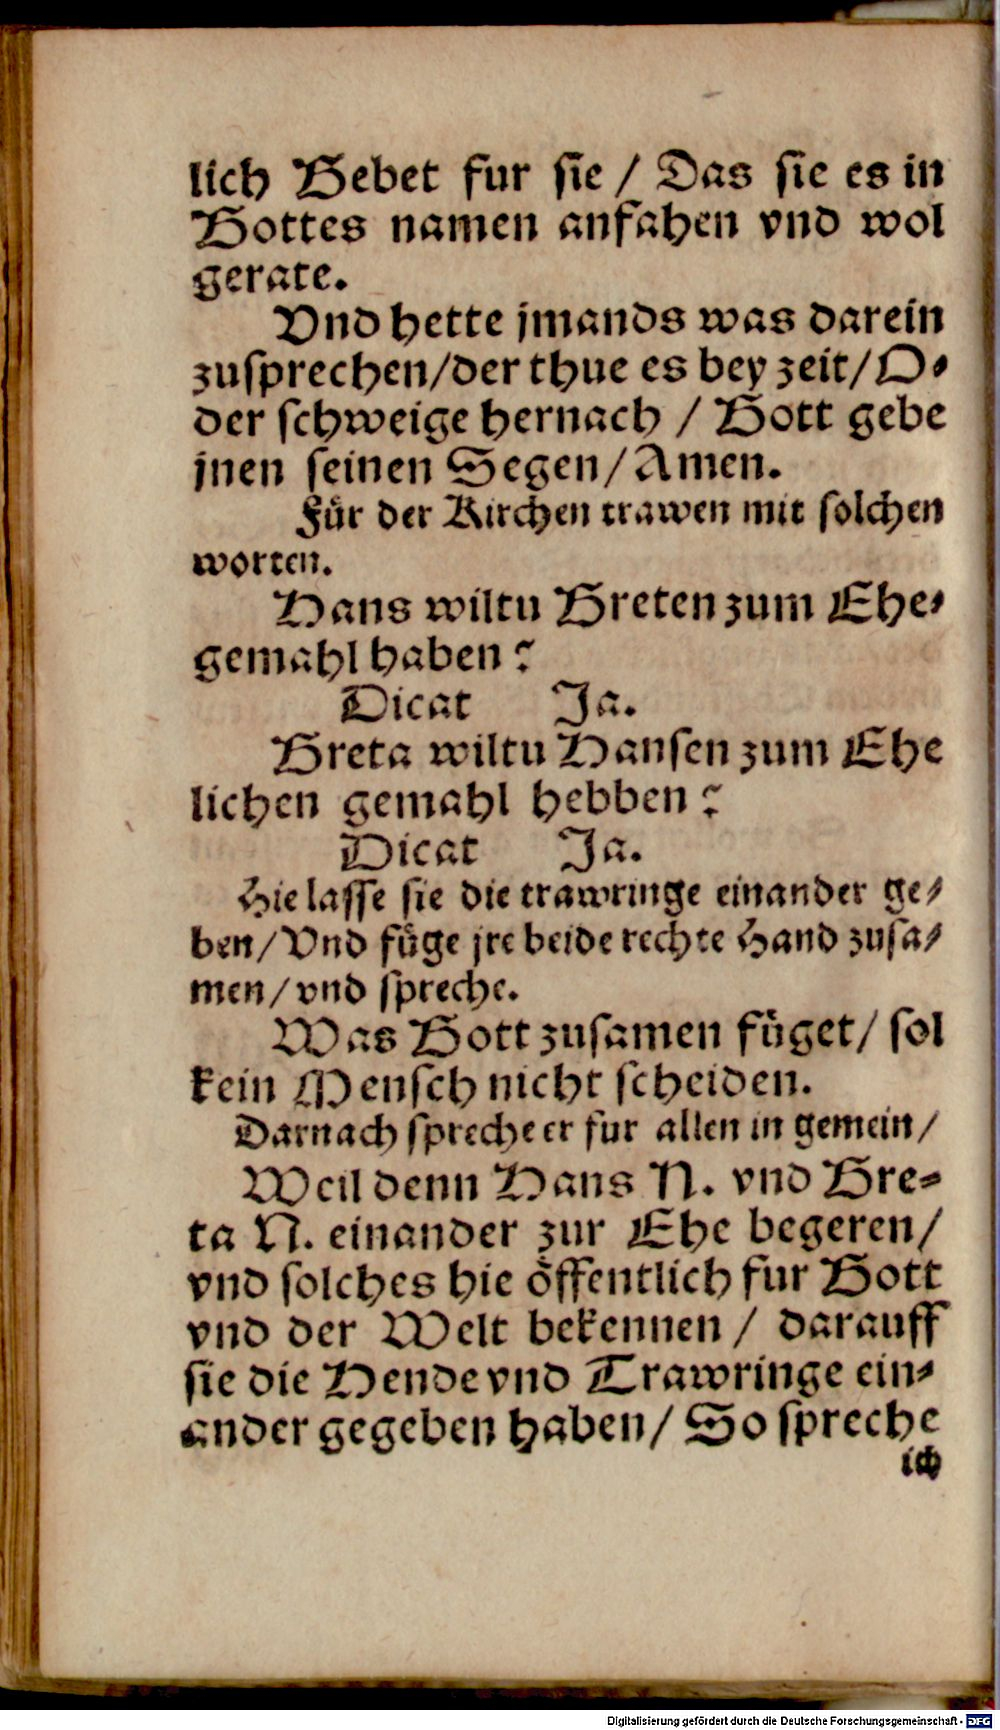 lich Gebet fur sie / Das sie es in
Gottes namen anfahen vnd wol
gerate.
Vnd hette jmands was darein
zusprechen/der thue es bey zeit/O⸗
der schweige hernach / Gott gebe
jnen seinen Segen/Amen.
Für der Kirchen trawen mit solchen
worten.
Hans wiltu Greten zum Ehe⸗
gemahl haben?
Dicat Ja.
Greta wiltu Hansen zum Ehe
lichen gemahl hebben?
Dicat Ja.
Hie lasse sie die trawringe einander ge⸗
ben/Vnd füge jre beide rechte Hand zusa⸗
men/vnd spreche.
Was Gott zusamen füget/ sol
kein Mensch nicht scheiden.
Darnach spreche er fur allen in gemein/
Weil denn Hans N. vnd Gre⸗
ta N. einander zur Ehe begeren/
vnd solches hie öffentlich fur Gott
vnd der Welt bekennen / darauff
sie die Hende vnd Trawringe ein⸗
ander gegeben haben/ So spreche
ich
Digitalisierung gefördert durch die Deutsche Forschungsgemeinschaft - DFG